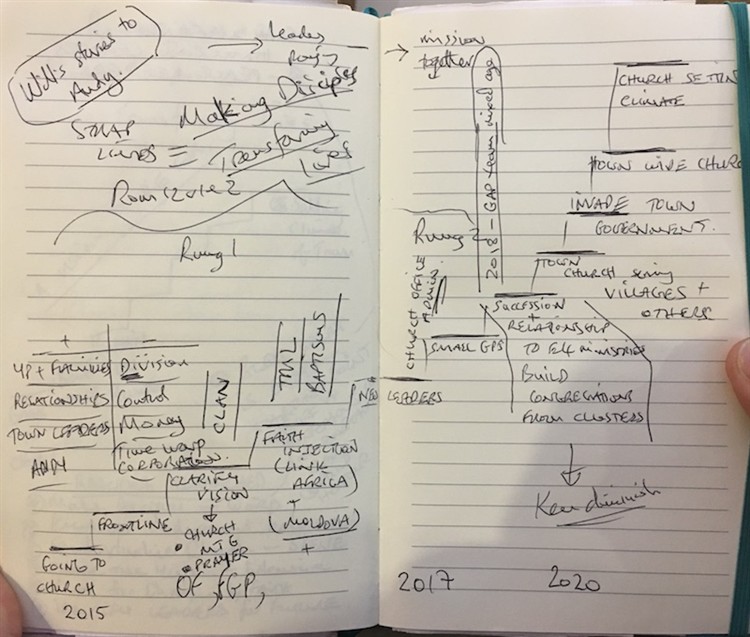 Andy.
stories to
→ leaders
Making Disciples
Transforming
Lives
=
Rung 1
+ -
YP + FAMILIES
Division
RELATIONSHIPS
Control
TOWN LEADERS
Money
ANDY
Time warp
CORPORATION.
CLAN
TML
BAPTISMS
CLARIFY
VISION
FAITH
INJECTION
(LINK
AFRICA)
+
(MOLDOVA)
+
FRONTLINE
• CHURCH
MTG
• PRAYER
GOING TO
CHURCH
2015
→ mission
together
2018 – GAP team mixed age
CHURCH SETTIN
CLIMATE
TOWN WIDE CHURC
INVADE TOWN
GOVERNMENT.
TOWN
CHURCH serving
VILLAGES +
OTHERS
Rung 2
CHURCH OFFICE
ADMIN.
SMALL GPS
NEW LEADERS
SUCCESSION
+
RELATIONSHIP
TO
MINISTRIES
BUILD
CONGREGATIONS
FROM CLUSTERS
Ken diminish
2017
2020